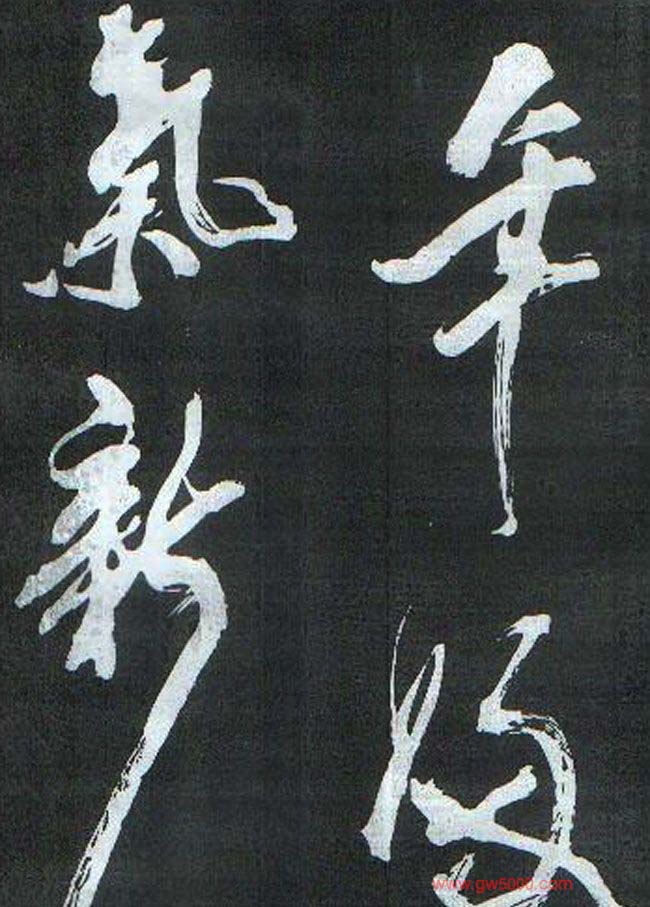 年
氣新
www.gw5000.com